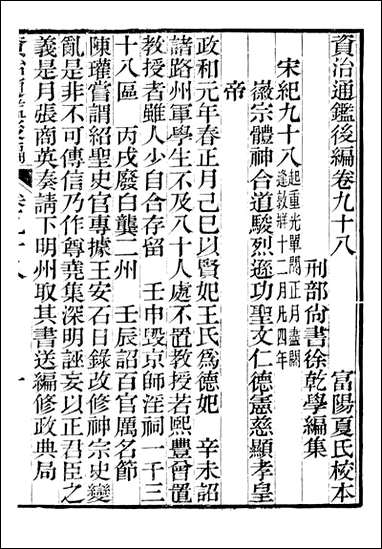 資治通鑑後編卷九十八
刑部尚書徐乾學編集
富陽夏氏校本
宋紀九十八
起重光單閼正月盡閼
逢敦牂十二月凡四年
徽宗體神合道駿烈遜功聖文仁德憲慈顯孝皇
帝
政和元年春正月己巳以賢妃王氏爲德妃　辛未詔
諸路州軍學生不及八十人處不置教授若熙豐曾置
教授者雖人少自合存留　壬申毀京師淫祠一千三
十八區　丙戌廢白龔二州　壬辰詔百官厲名節
陳瓘嘗謂紹聖史官專據王安石日錄改修神宗史變
亂是非不可傳信乃作尊堯集深明誣妄以正君臣之
義是月張商英奏請下明州取其書送編修政典局
資治通鑑後編
卷九十八
一